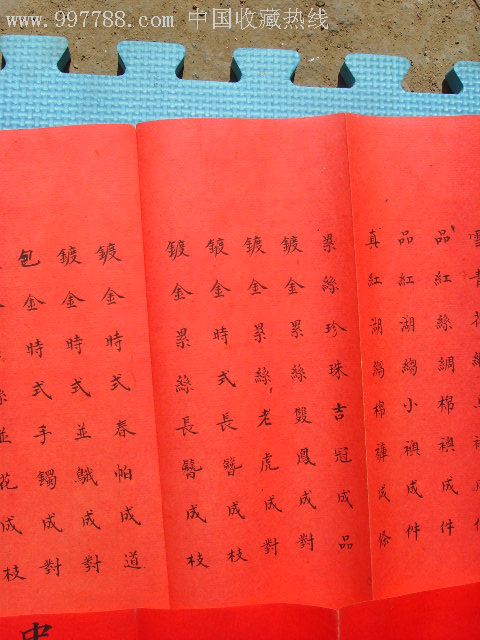 www.997788.com 中国收藏热线
雪青花
品紅絲綢棉襖成件
品紅湖縐小襖成件
真紅湖縐棉褲成條
累絲珍珠吉冠成品
鍍金累絲雙鳳成對
鍍金累絲老虎成對
鍍金時式長簪成枝
鍍金累絲長簪成枝
鍍金時式春帕成道
鍍金時式並成對
包金時式手鐲成對
並花成枝